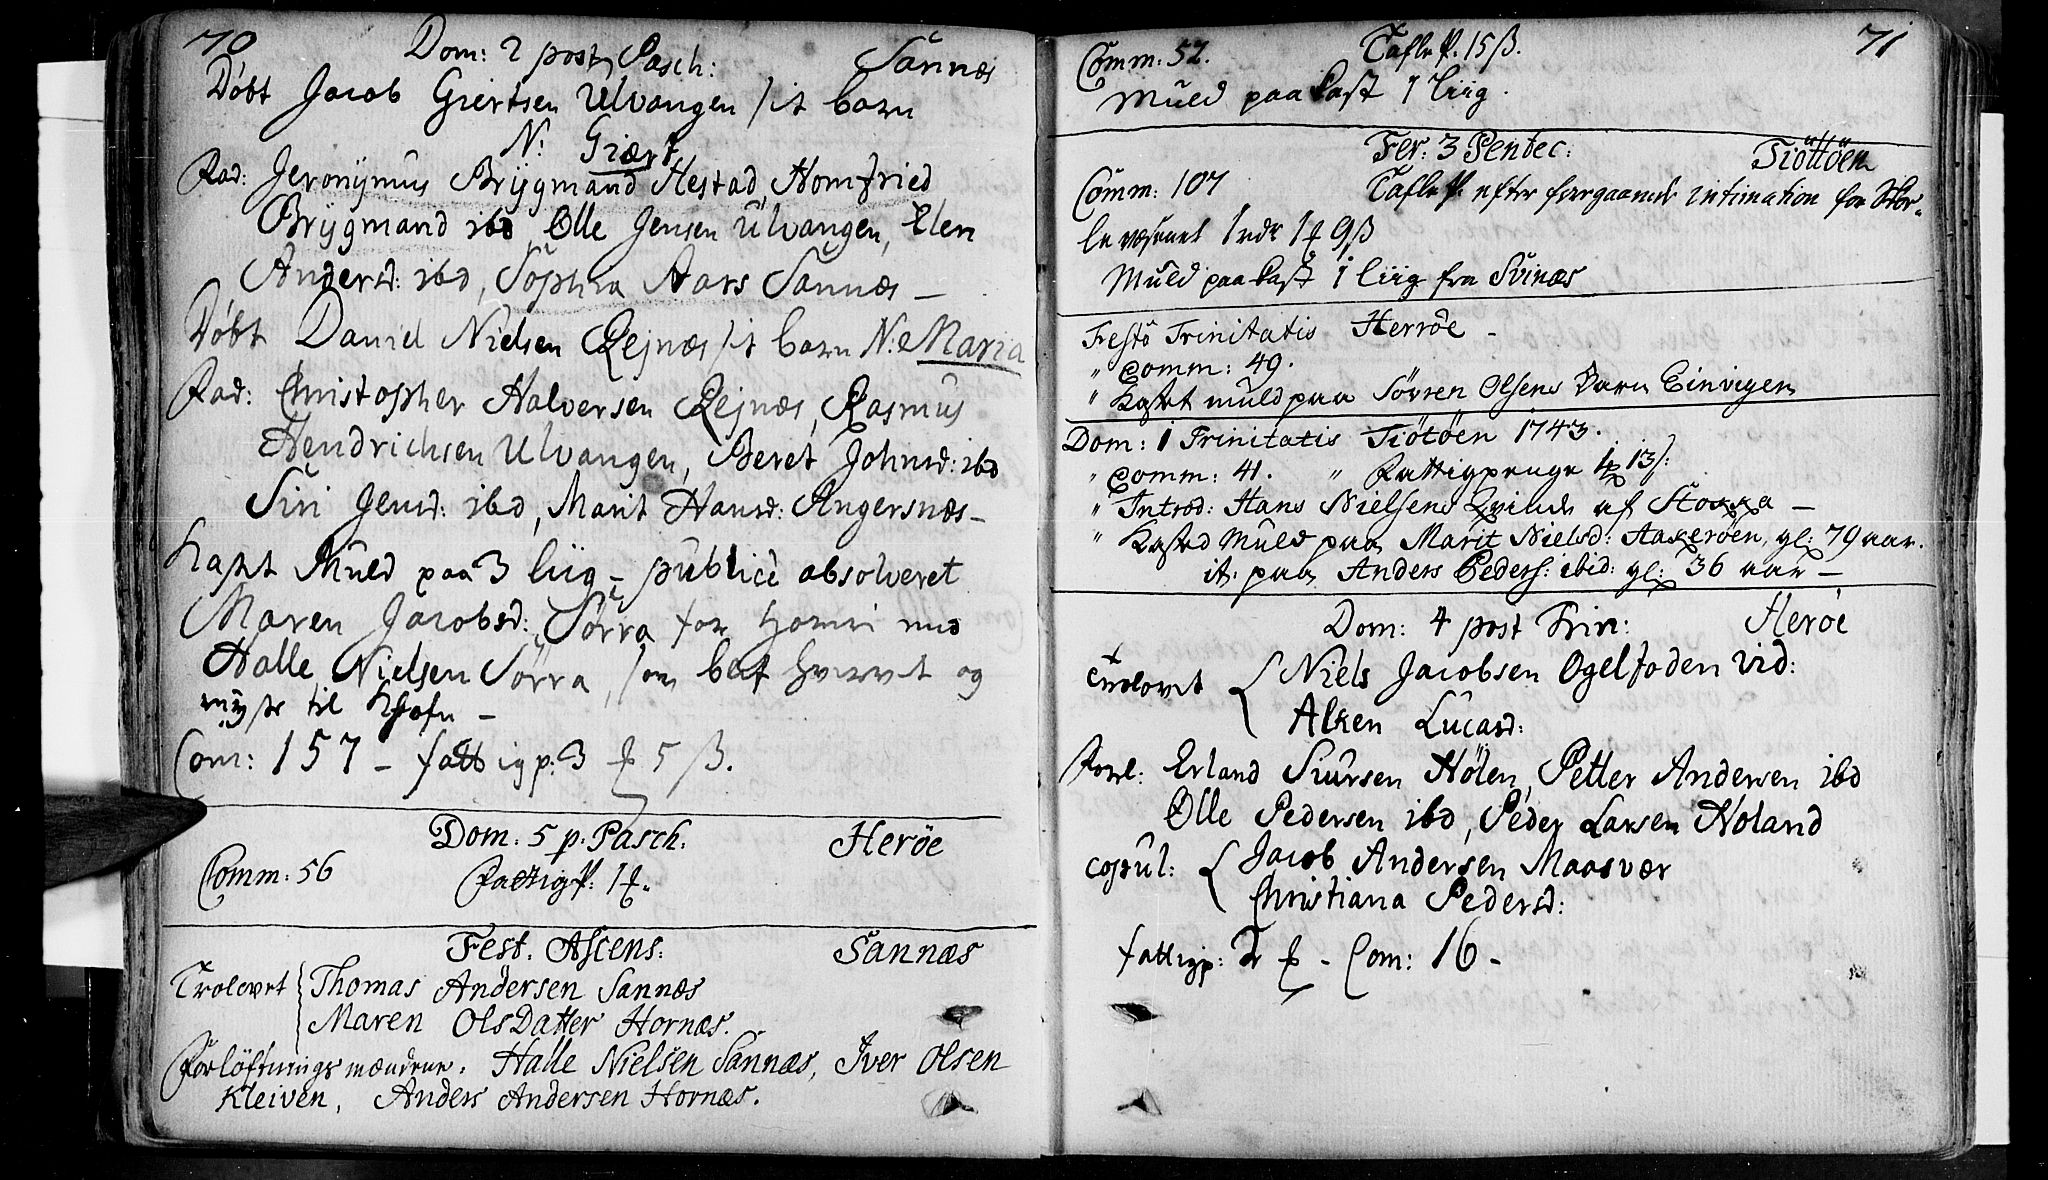 70
Dom: 2 post Pasch: Sannæs
Døbt Jacob Giertsen Ulvangen sit barn
N: Giært
Fad: Jeronijmus Brijgmand Hestad, Homfried
Brijgmand ibd, Olle Jensen Ulvangen, Elen
Andersd: ibd, Sophia Aars Sannæs –
Døbt Daniel Nielsen Rejnæs sit barn N: Maria
Fad: Christopher Halversen Rejnæs, Rasmus
Hendrichsen Ulvangen, Beret Johnsd: ibd
Siri Jensd: ibd, Marit Hansd: Angersnæs –
Kast Muld paa 3 liig – publicè absolveret
Maren Jacobsd: Sörra for horeri med
Halle Nielsen Sörra, som blef hvervet og
til
Com: 157 – fattigp: 3 ƒ 5 ß.
Dom: 5 p. Pasch: Herøe
Comm: 56 Fattig P: 1ƒ.
Fest. Ascens: Sannæs
Trolovet { Thomas Andersen Sannæs
Maren OlsDatter Hornæs.
Forlöftnings mændene. Halle Nielsen Sannæs, Iver Olsen
Kleiven, Anders Andersen Hornæs.
71
Comm: 52. Tafle P. 15 ß.
Muld paa Kast 1 liig.
Fer: 3 Pentec: Tiöttöen
Comm: 107 Tafle P. efter foregaaende intimation for Skoe-
le væsenet 1 rdr 1ƒ 9ß
Muld paa Kast 1 liig fra Svinæs
Festo Trinitatis Herröe –
" Comm: 49.
" Kastet muld paa Sövren Olsens Barn Einvigen
Dom: 1 Trinitatis Tiötöen 1743.
" Comm: 41. " Fattigpenge 1ƒ 13ß:
" Introd: Hans Nielsens Qvinde af Stokka –
" Kasted Muld paa Marit Nielsd: Aakeröen, gl: 79 aar.
it: paa Anders Peders: ibid: gl: 36 aar –
Dom: 4 post Trin: Herøe
Trolovet { Niels Jacobsen Ogelfoden vid:
Alken Lucasd:
Forl: Erland Siursen Hölen, Petter Andersen ibd
Olle Pedersen ibd, Peder Larsen Holand
Copul: { Jacob Andersen Maasvær
Christiana Pedersd:
fattigp: 2 ƒ – Com: 16 –